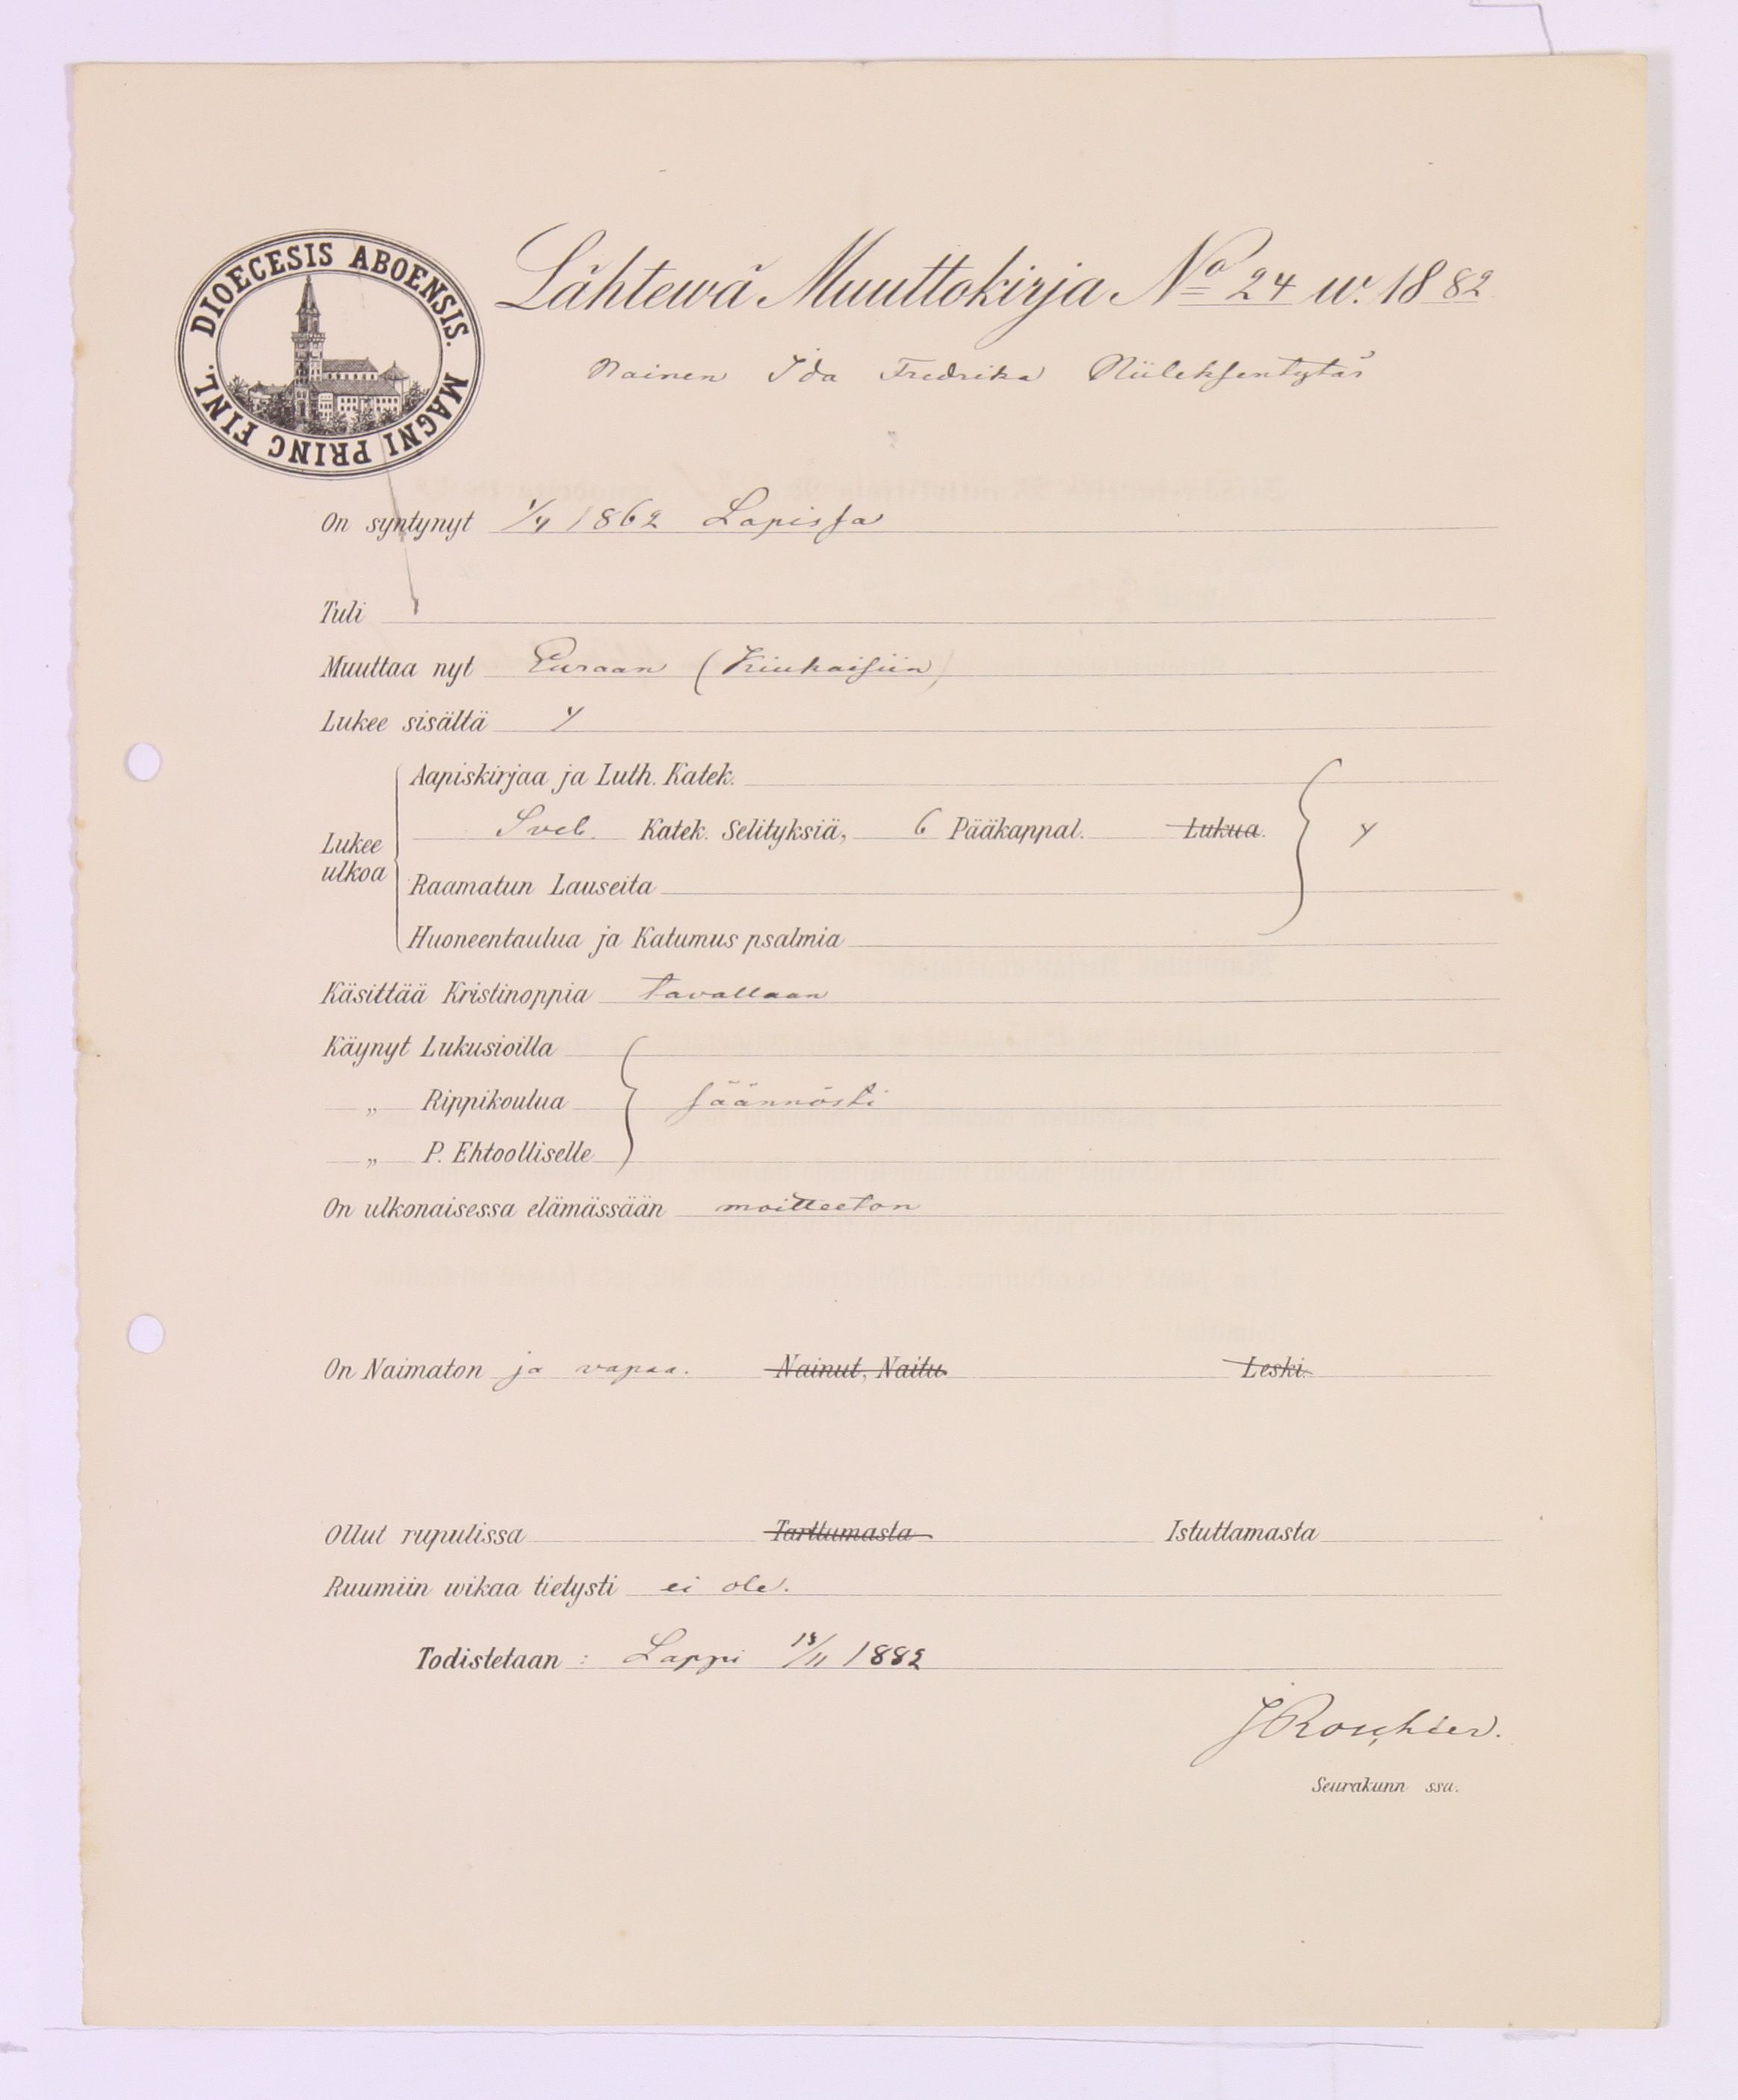 DIOECESIS ABOENSIS. MAGNI PRINC FINL.
Lähtewä Muuttokirja No 24 w. 1882
Nainen Ida Fredrika Niileksentytär
On syntynyt 1/4 1862 Lapissa
Tuli
Muuttaa nyt Euraan (Kiukaisiin)
Lukee sisältä y
Lukee ulkoa
Aapiskirjaa ja Luth. Katek.
Sveb. Katek. Selityksiä, 6 Pääkappal. Lukua. y
Raamatun Lauseita
Huoneentaulua ja Katumus psalmia
Käsittää Kristinoppia tavallaan
Käynyt Lukusioilla
„ Rippikoulua säännösti
„ P. Ehtoolliselle
On ulkonaisessa elämässään moitteeton
On Naimaton ja vapaa. Nainut, Naitu. Leski.
Ollut rupulissa Tarttumasta Istuttamasta
Ruumiin wikaa tietysti ei ole.
Todistetaan : Lappi /11 1882
J Roschier.
Seurakunn ssa.